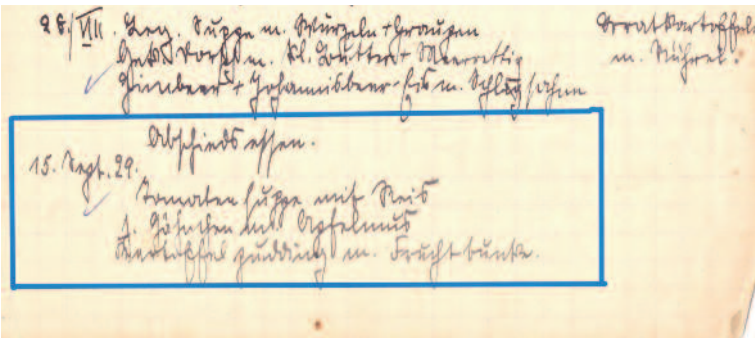 28./VIII. Leg. Suppe m. Wurzeln + Graupen
Gek. Dorsch m. kl. Butter + Meerrettig
Himbeer + Johannisbeer-Eis m. Schlagsahne
Bratkartoffeln
m. Rührei.
Abschiedsessen.
15. Sept. 29.
Tomatensuppe mit Reis
j. Hähnchen mit Apfelmus
Kartoffelpudding m. Fruchttunke.